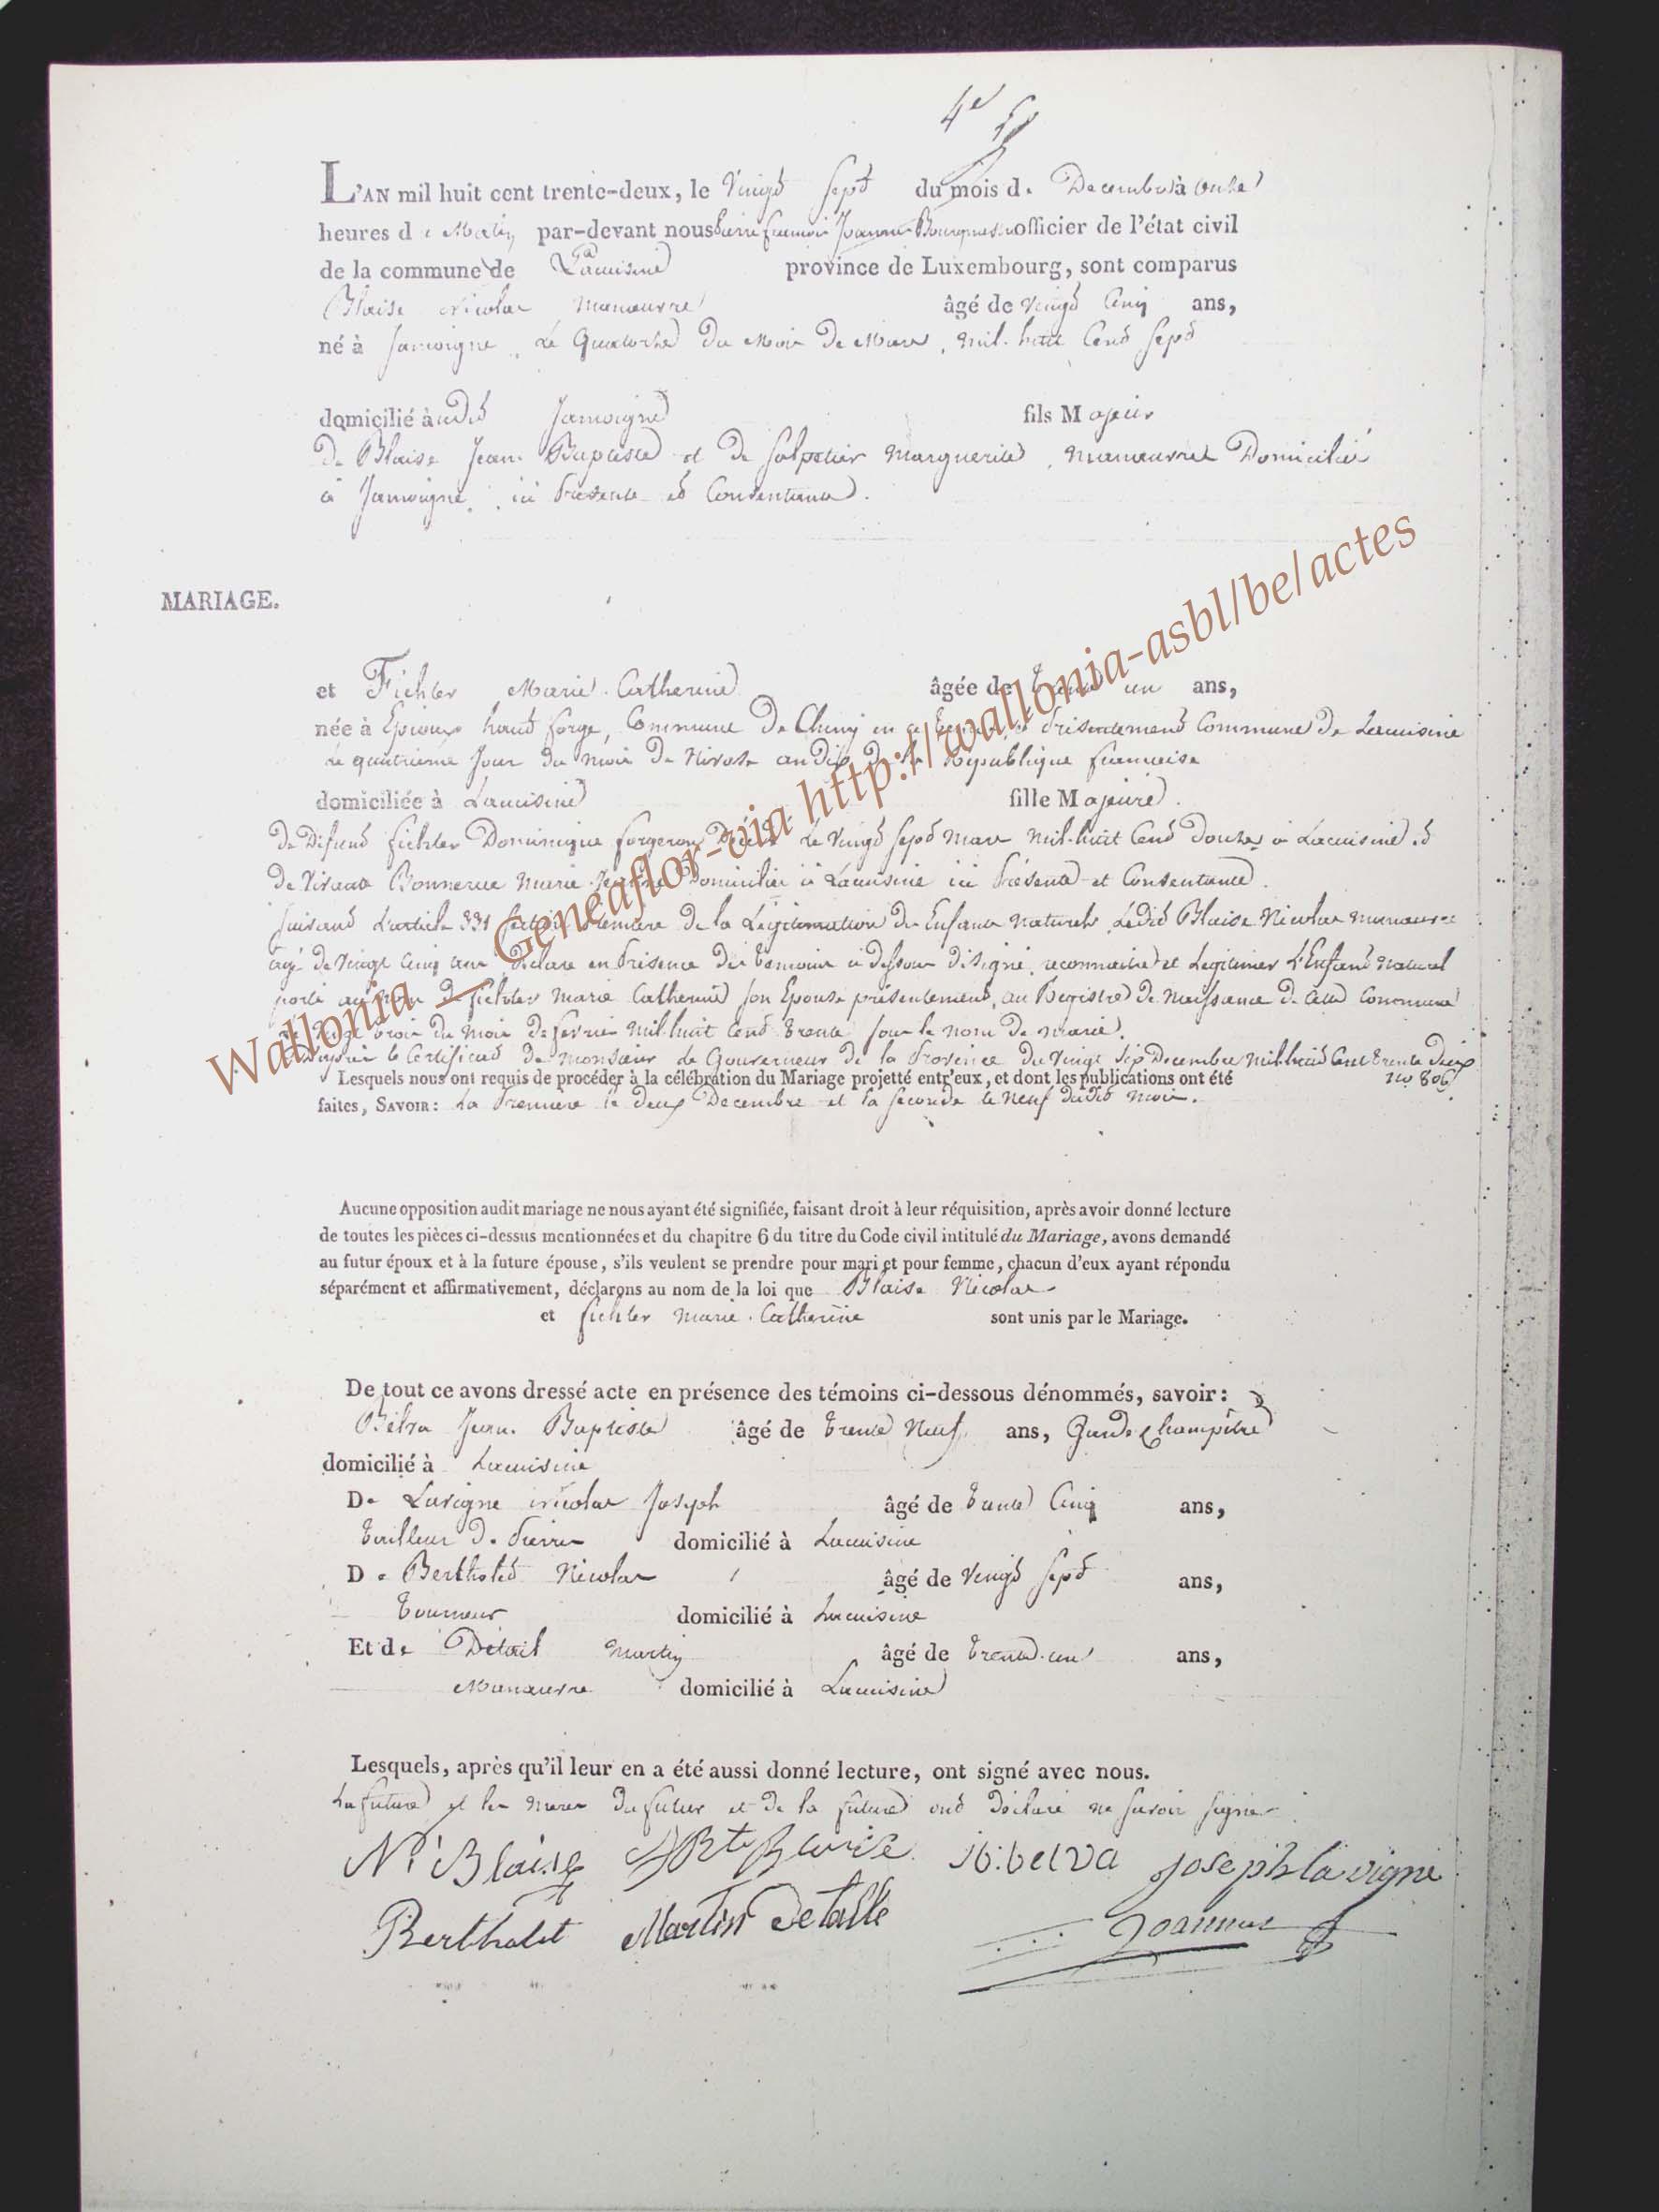 4e
L'AN mil huit cent trente-deux, le Vingt Sept du mois de Decembre à onze
heures du Matin par-devant nous Pierre francois Joannes Bourguemestre officier de l'état civil
de la commune de Lacuisine province de Luxembourg, sont comparus
Blaise Nicolas manœuvre âgé de vingt Cinq ans,
né à Jamoigne, Le Quatorze du Mois De Mars, mil-huit Cent Sept
domicilié à audit Jamoigne fils Majeur
De Blaise Jean Baptiste et De Salpetier Marguerite, manœuvres Domiciliés
à Jamoigne, ici Presente et Consentante.
MARIAGE.
et Fichter Marie Catherine âgée de trente un ans,
née à Epioux haut forge, Commune De Chiny en ce tems, Présentement Commune De Lacuisine
Le quatrième Jour du mois De Nivose an Dix De la République francaise
domiciliée à Lacuisine fille Majeure.
De Difunt fichter Dominique forgeron, Décédé Le Vingt Sept Mars mil-huit Cent Douze à Lacuisine. Et
De Vivante Bonnerue Marie Jeanne Domicilié à Lacuisine ici Présente et Consentante.
Suivant L'article 331 Section Premiere De la Légitimation Des Enfants Naturels, Ledit Blaise Nicolas manœuvre
agé De Vingt Cinq ans, Déclare en Présence Des temoins ci dessous Désigné, reconnaitre et Legitimer L'Enfant Naturel
porté au Nom De fichter Marie Catherine Son Epouse présentement, au Registre De Naissance De Cette Commune
Le Vingt trois du mois De fevrier mil-huit Cent trente sous le nom De Marie.
D'après le Certificat De Monsieur Le Gouverneur De la Province Du Vingt Six Decembre mil-huit Cent trente Deux
No 806.
Lesquels nous ont requis de procéder à la célébration du Mariage projetté entr'eux, et dont les publications ont été
faites, SAVOIR: La Premiere le deux Decembre et la seconde le Neuf dudit mois.
Aucune opposition audit mariage ne nous ayant été signifiée, faisant droit à leur réquisition, après avoir donné lecture
de toutes les pièces ci-dessus mentionnées et du chapitre 6 du titre du Code civil intitulé du Mariage, avons demandé
au futur époux et à la future épouse, s'ils veulent se prendre pour mari et pour femme, chacun d'eux ayant répondu
séparément et affirmativement, déclarons au nom de la loi que Blaise Nicolas
et fichter Marie Catherine sont unis par le Mariage.
De tout ce avons dressé acte en présence des témoins ci-dessous dénommés, savoir: De
Belva Jean Baptiste âgé de trente Neuf ans, Garde Champêtre
domicilié à Lacuisine
De Lavigne Nicolas Joseph âgé de trente Cinq ans,
Tailleur De Pierres domicilié à Lacuisine
De Bertholet Nicolas âgé de Vingt Sept ans,
Tourneur domicilié à Lacuisine
Et de Detail Martin âgé de trente-un ans,
Manœuvre domicilié à Lacuisine
Lesquels, après qu'il leur en a été aussi donné lecture, ont signé avec nous.
La future et les meres du futur et de la future ont Déclaré ne savoir signer.
N. Blaise JBte Blaise jb: belva joseph lavigne
Bertholet Martin Detalle Joannes
Wallonia — Geneaflor-via http://wallonia-asbl/be/actes